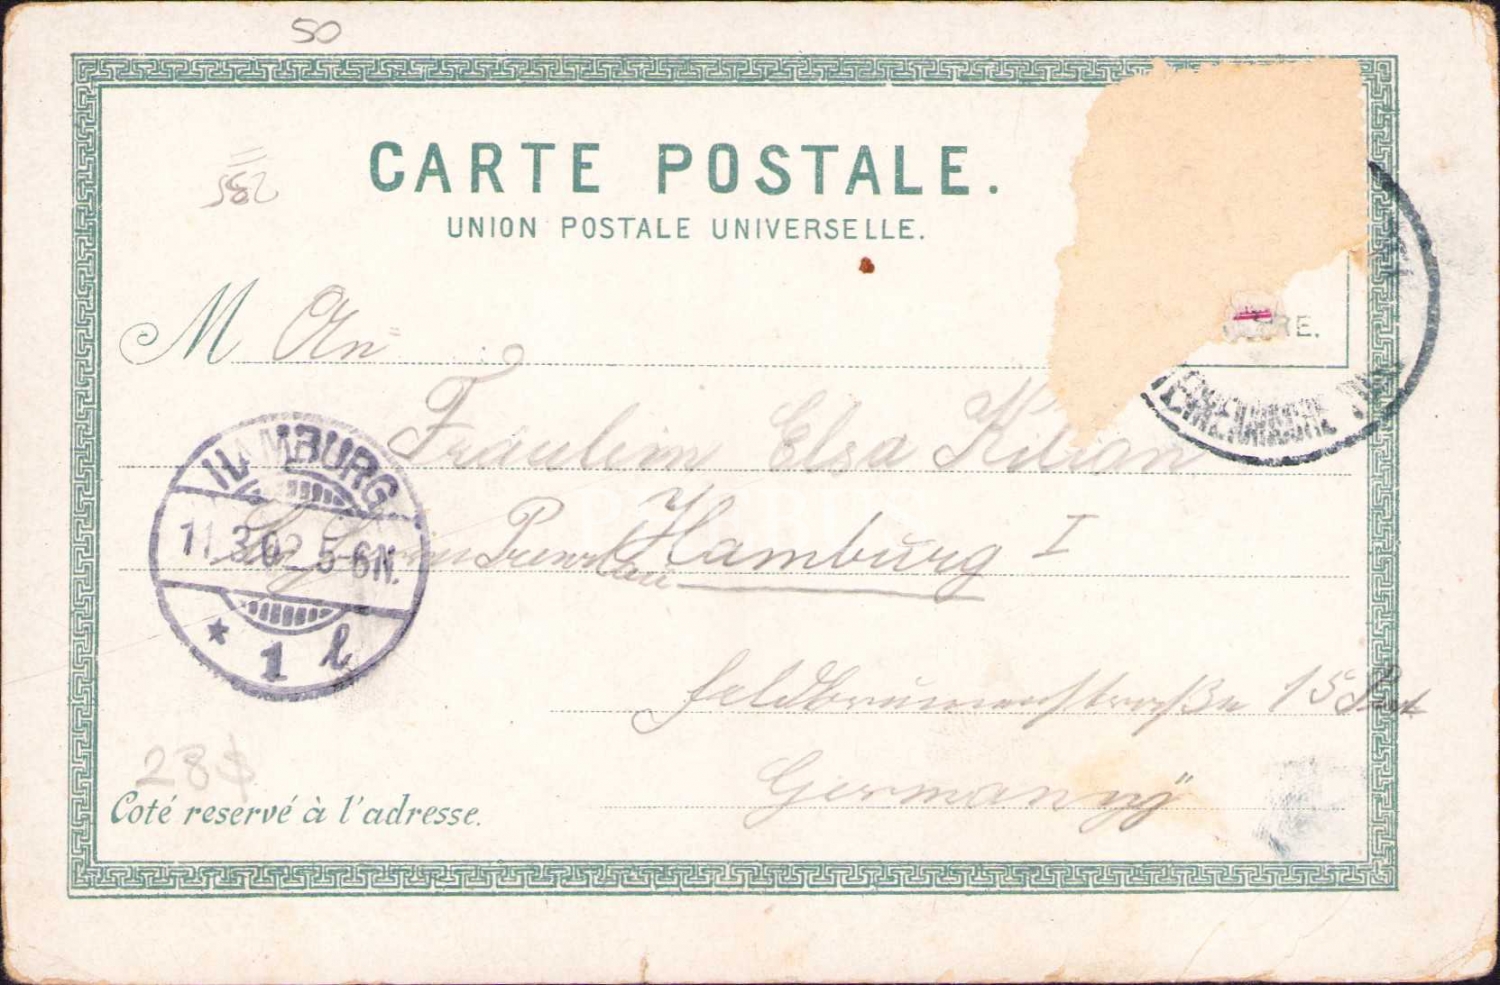 50
582
CARTE POSTALE.
UNION POSTALE UNIVERSELLE.
M An
Fräulein Elsa Kilian
Hamburg I
HAMBURG
11.3.02 5-6N.
* 1 l
Feldbrunnenstraße 15 Part
Germany"
28$
Coté reservé à l'adresse.